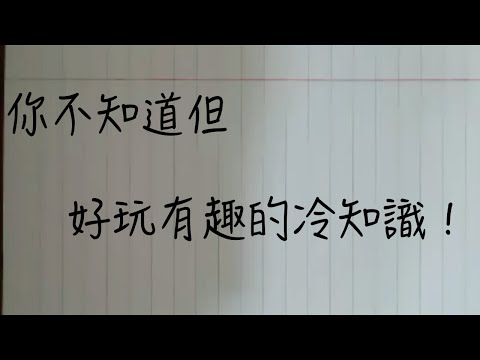 你不知道但
好玩有趣的冷知識！